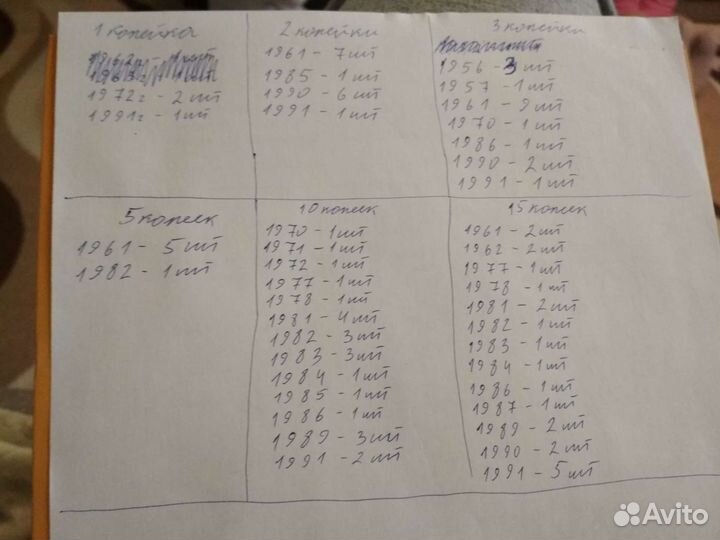 1 копейка
1972г - 2 шт
1991г - 1 шт
2 копейки
1961 - 7 шт
1985 - 1 шт
1990 - 6 шт
1991 - 1 шт
3 копейки
1956 - 3 шт
1957 - 1 шт
1961 - 9 шт
1970 - 1 шт
1986 - 1 шт
1990 - 2 шт
1991 - 1 шт
5 копеек
1961 - 5 шт
1982 - 1 шт
10 копеек
1970 - 1 шт
1971 - 1 шт
1972 - 1 шт
1977 - 1 шт
1978 - 1 шт
1981 - 4 шт
1982 - 3 шт
1983 - 3 шт
1984 - 1 шт
1985 - 1 шт
1986 - 1 шт
1989 - 3 шт
1991 - 2 шт
15 копеек
1961 - 2 шт
1962 - 2 шт
1977 - 1 шт
1978 - 1 шт
1981 - 2 шт
1982 - 1 шт
1983 - 1 шт
1984 - 1 шт
1986 - 1 шт
1987 - 1 шт
1989 - 2 шт
1990 - 2 шт
1991 - 5 шт
Avito